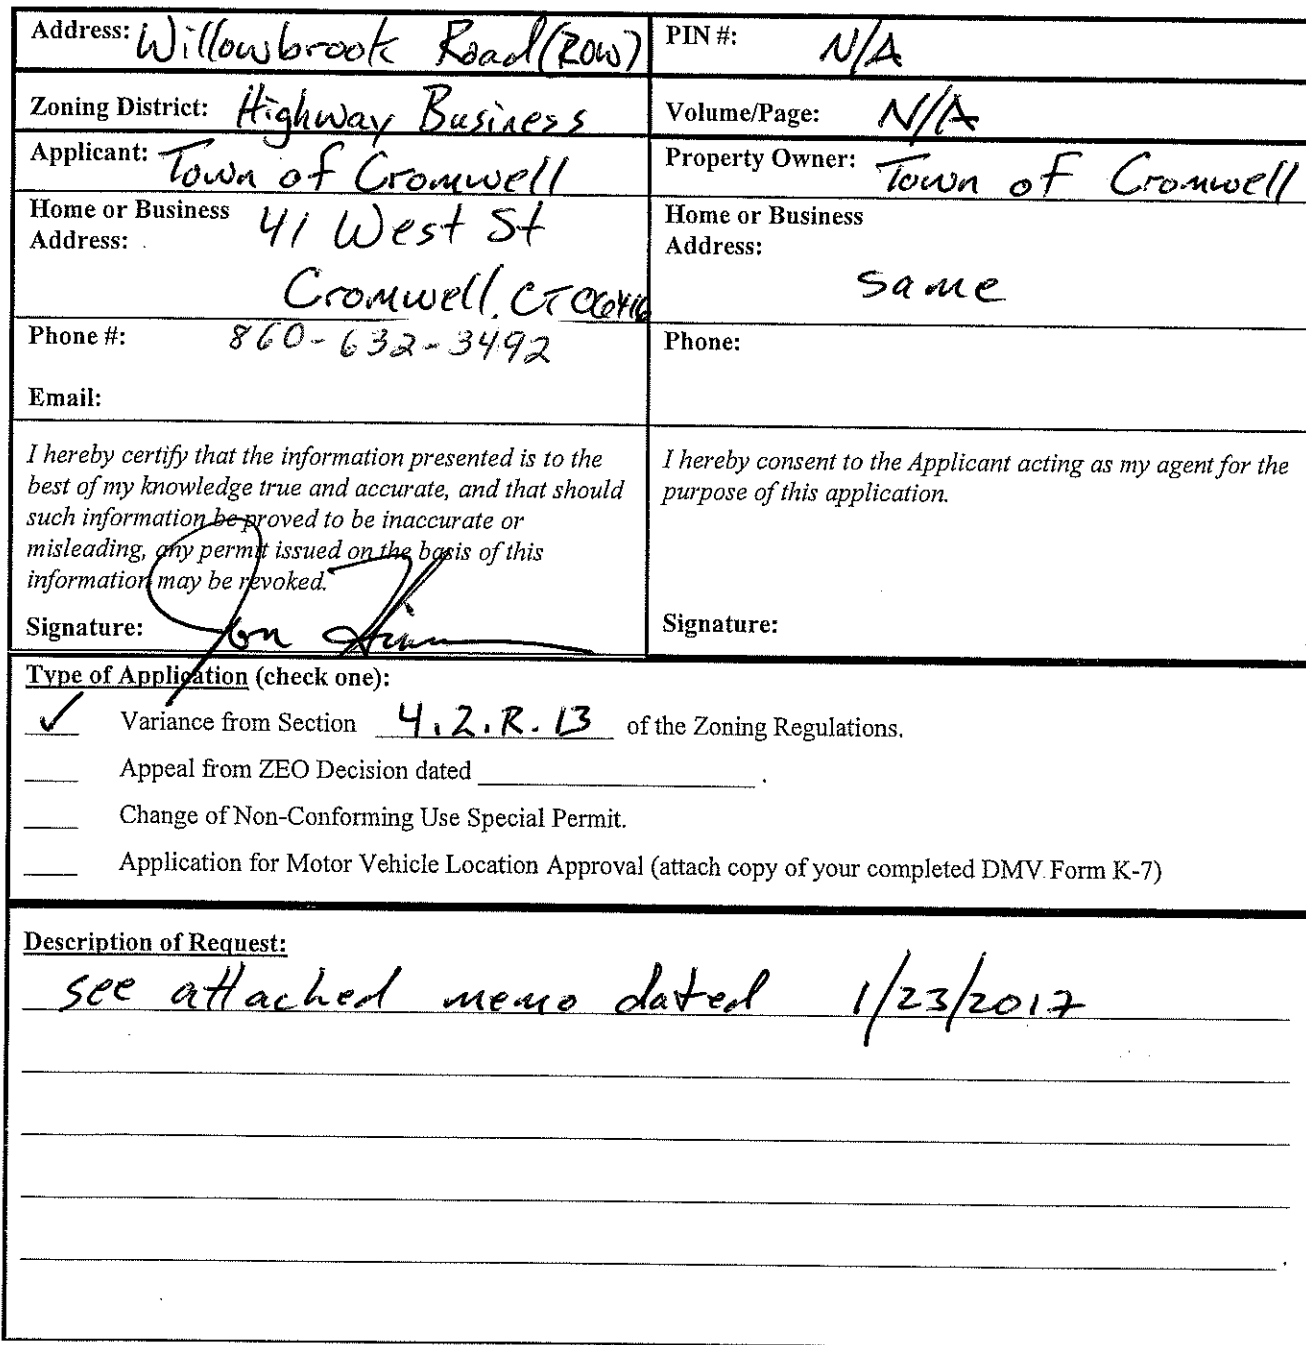 Address: Willowbrook Road (ROW)
PIN #: N/A
Zoning District: Highway Business
Volume/Page: N/A
Applicant: Town of Cromwell
Property Owner: Town of Cromwell
Home or Business
Address: 41 West St
Cromwell, CT 06416
Home or Business
Address:
same
Phone #: 860-632-3492
Phone:
Email:
I hereby certify that the information presented is to the
best of my knowledge true and accurate, and that should
such information be proved to be inaccurate or
misleading, any permit issued on the basis of this
information may be revoked.
Signature: Jon
I hereby consent to the Applicant acting as my agent for the
purpose of this application.
Signature:
Type of Application (check one):
✓ Variance from Section 4.2.R.13 of the Zoning Regulations.
Appeal from ZEO Decision dated .
Change of Non-Conforming Use Special Permit.
Application for Motor Vehicle Location Approval (attach copy of your completed DMV Form K-7)
Description of Request:
see attached memo dated 1/23/2017